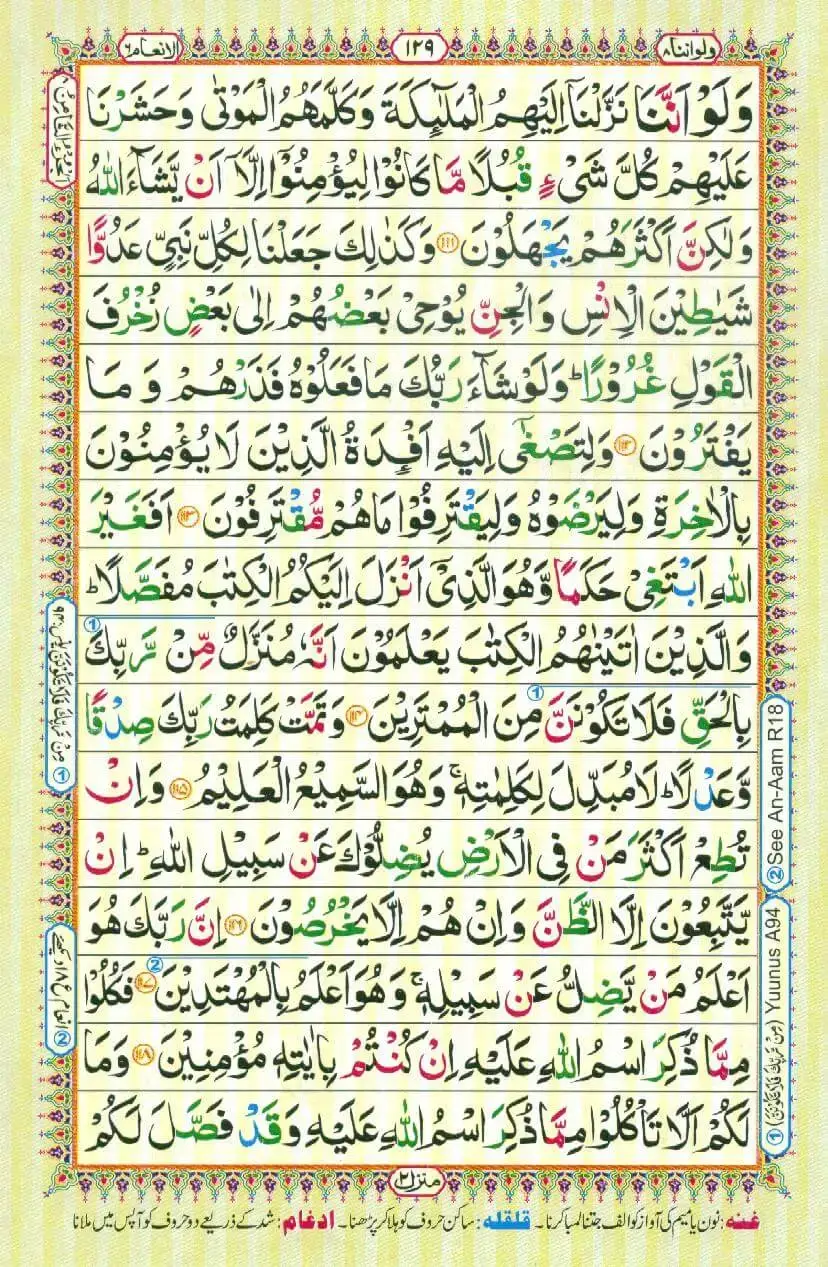 ولواننا۸
۱۲۹
الانعام۶
وَلَوْ اَنَّنَا نَزَّلْنَاۤ اِلَيْهِمُ الْمَلٰٓئِكَةَ وَكَلَّمَهُمُ الْمَوْتٰى وَحَشَرْنَا
عَلَيْهِمْ كُلَّ شَىْءٍ قُبُلًا مَّا كَانُوْا لِيُؤْمِنُوْۤا اِلَّاۤ اَنْ يَّشَآءَ اللّٰهُ
وَلٰكِنَّ اَكْثَرَهُمْ يَجْهَلُوْنَ ۝۱۱۱ وَكَذٰلِكَ جَعَلْنَا لِكُلِّ نَبِىٍّ عَدُوًّا
شَيٰطِيْنَ الْاِنْسِ وَالْجِنِّ يُوْحِىْ بَعْضُهُمْ اِلٰى بَعْضٍ زُخْرُفَ
الْقَوْلِ غُرُوْرًا ؕ وَلَوْ شَآءَ رَبُّكَ مَا فَعَلُوْهُ فَذَرْهُمْ وَمَا
يَفْتَرُوْنَ ۝۱۱۲ وَلِتَصْغٰٓى اِلَيْهِ اَفْـِٕدَةُ الَّذِيْنَ لَا يُؤْمِنُوْنَ
بِالْاٰخِرَةِ وَلِيَرْضَوْهُ وَلِيَقْتَرِفُوْا مَا هُمْ مُّقْتَرِفُوْنَ ۝۱۱۳ اَفَغَيْرَ
اللّٰهِ اَبْتَغِىْ حَكَمًا وَّهُوَ الَّذِىْۤ اَنْزَلَ اِلَيْكُمُ الْكِتٰبَ مُفَصَّلًا ؕ
وَالَّذِيْنَ اٰتَيْنٰهُمُ الْكِتٰبَ يَعْلَمُوْنَ اَنَّهٗ مُنَزَّلٌ مِّنْ رَّبِّكَ
بِالْحَقِّ فَلَا تَكُوْنَنَّ مِنَ الْمُمْتَرِيْنَ ۝۱۱۴ وَتَمَّتْ كَلِمَتُ رَبِّكَ صِدْقًا
وَّعَدْلًا ؕ لَا مُبَدِّلَ لِكَلِمٰتِهٖ ۚ وَهُوَ السَّمِيْعُ الْعَلِيْمُ ۝۱۱۵ وَاِنْ
تُطِعْ اَكْثَرَ مَنْ فِى الْاَرْضِ يُضِلُّوْكَ عَنْ سَبِيْلِ اللّٰهِ ؕ اِنْ
يَّتَّبِعُوْنَ اِلَّا الظَّنَّ وَاِنْ هُمْ اِلَّا يَخْرُصُوْنَ ۝۱۱۶ اِنَّ رَبَّكَ هُوَ
اَعْلَمُ مَنْ يَّضِلُّ عَنْ سَبِيْلِهٖ ۚ وَهُوَ اَعْلَمُ بِالْمُهْتَدِيْنَ ۝۱۱۷ فَكُلُوْا
مِمَّا ذُكِرَ اسْمُ اللّٰهِ عَلَيْهِ اِنْ كُنْتُمْ بِاٰيٰتِهٖ مُؤْمِنِيْنَ ۝۱۱۸ وَمَا
لَكُمْ اَلَّا تَاْكُلُوْا مِمَّا ذُكِرَ اسْمُ اللّٰهِ عَلَيْهِ وَقَدْ فَصَّلَ لَكُمْ
② See An-Aam R18
① (مِنْ رَّبِّكَ فَلَا تَكُوْنَنَّ) Yuunus A94
منزل۲
غنہ: نون یا میم کی آواز کو الف جتنا لمبا کرنا۔ قلقلہ: ساکن حروف کو ہلا کر پڑھنا۔ ادغام: شد کے ذریعے دو حروف کو آپس میں ملانا